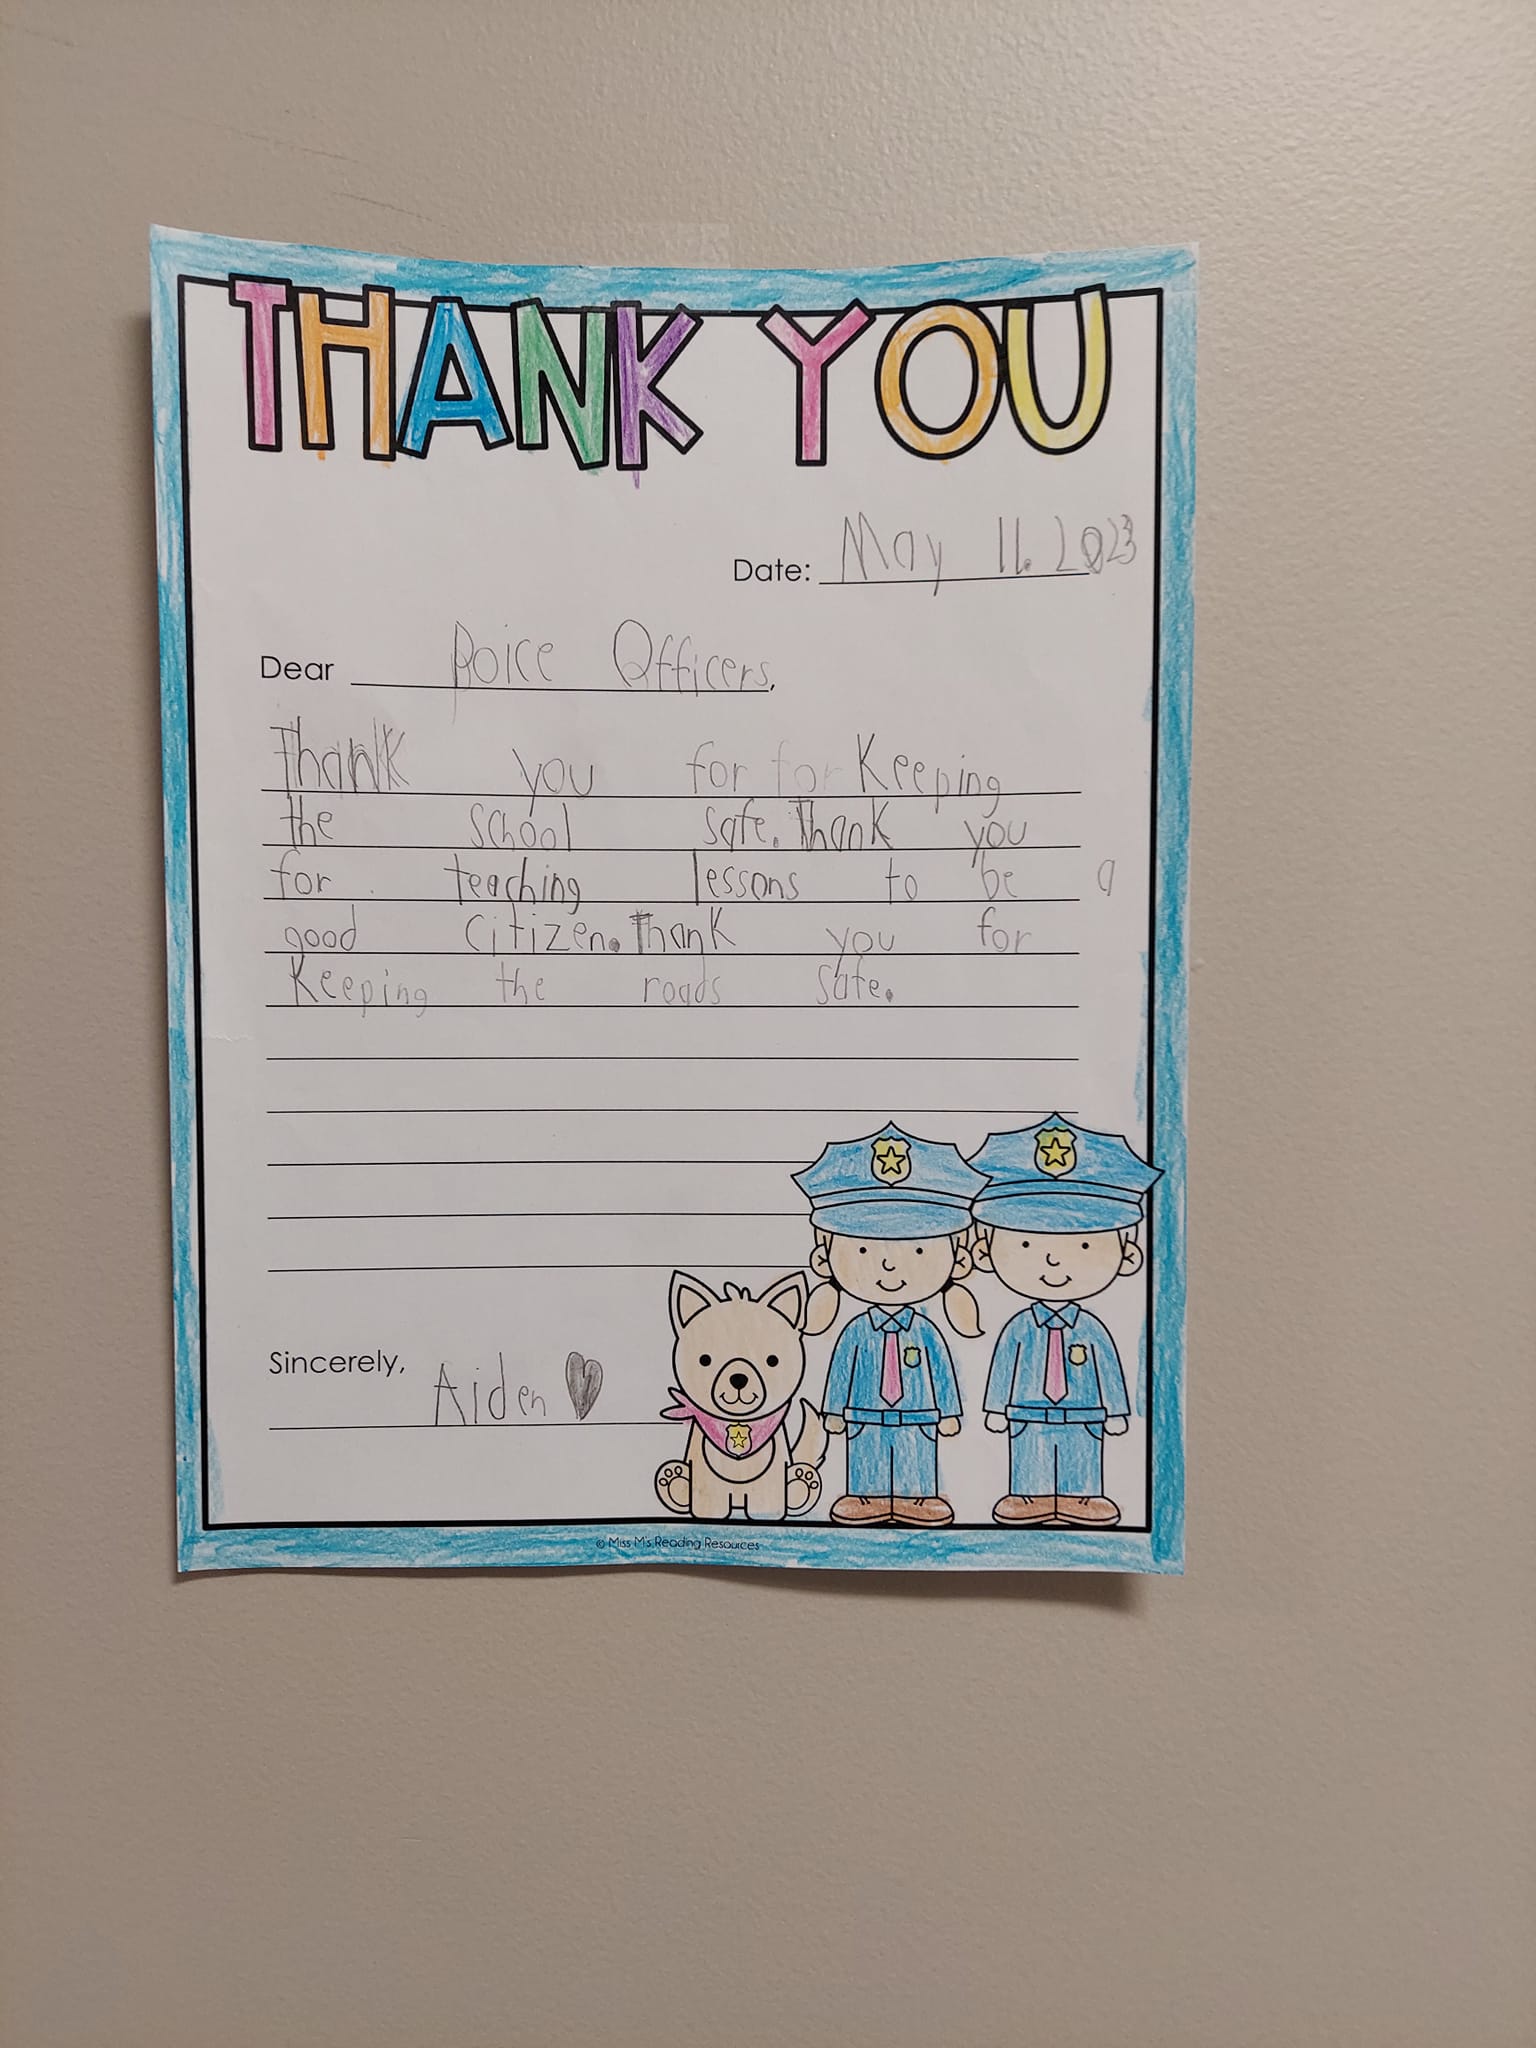 THANK YOU
Date: May 11. 2023
Dear Poice Officers,
Thank you for for Keeping
the school safe. Thank you
for teaching lessons to be a
good citizen. Thank you for
Keeping the roads safe.
Sincerely,
Aiden
© Miss M's Reading Resources